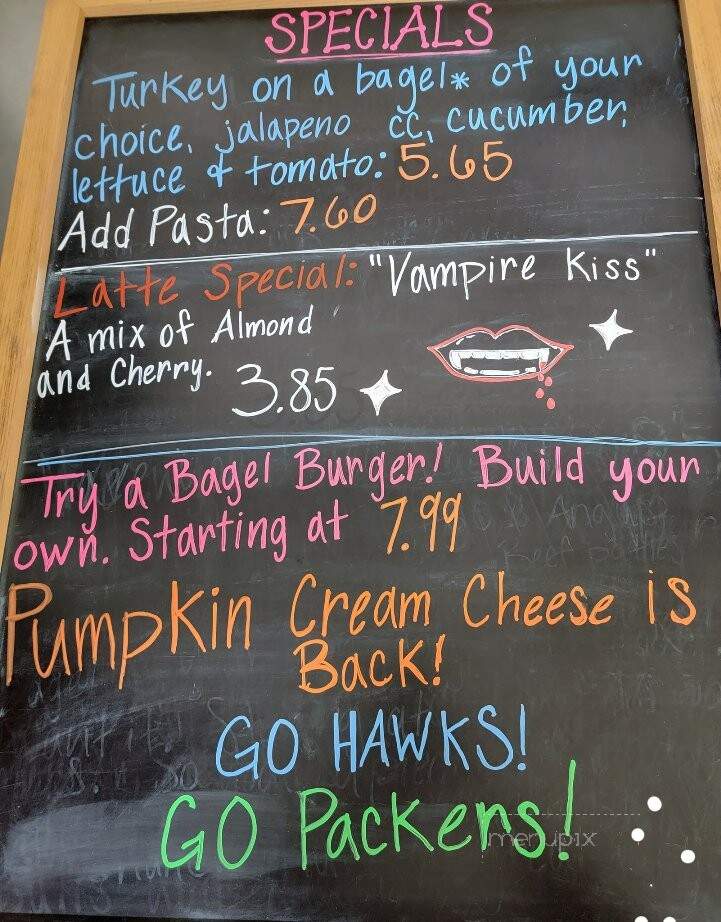 SPECIALS
Turkey on a bagel* of your
choice, jalapeno cc, cucumber,
lettuce & tomato: 5.65
Add Pasta: 7.60
Latte Special: "Vampire Kiss"
A mix of Almond
and Cherry. 3.85
Try a Bagel Burger! Build your
own. Starting at 7.99
Pumpkin Cream Cheese is
Back!
GO HAWKS!
GO Packers!
menupix